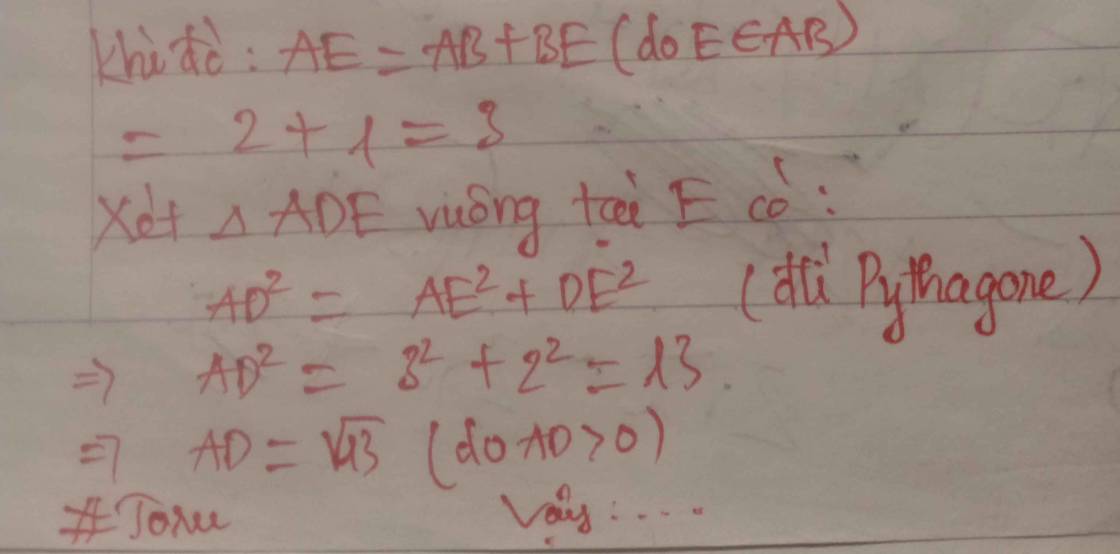 Khi đó : AE = AB + BE (do E ∈ AB)
= 2 + 1 = 3
Xét △ ADE vuông tại E có :
AD² = AE² + DE² (đlí Pythagore)
=> AD² = 3² + 2² = 13
=> AD = √13 (do AD > 0)
#Toru Vậy : ....